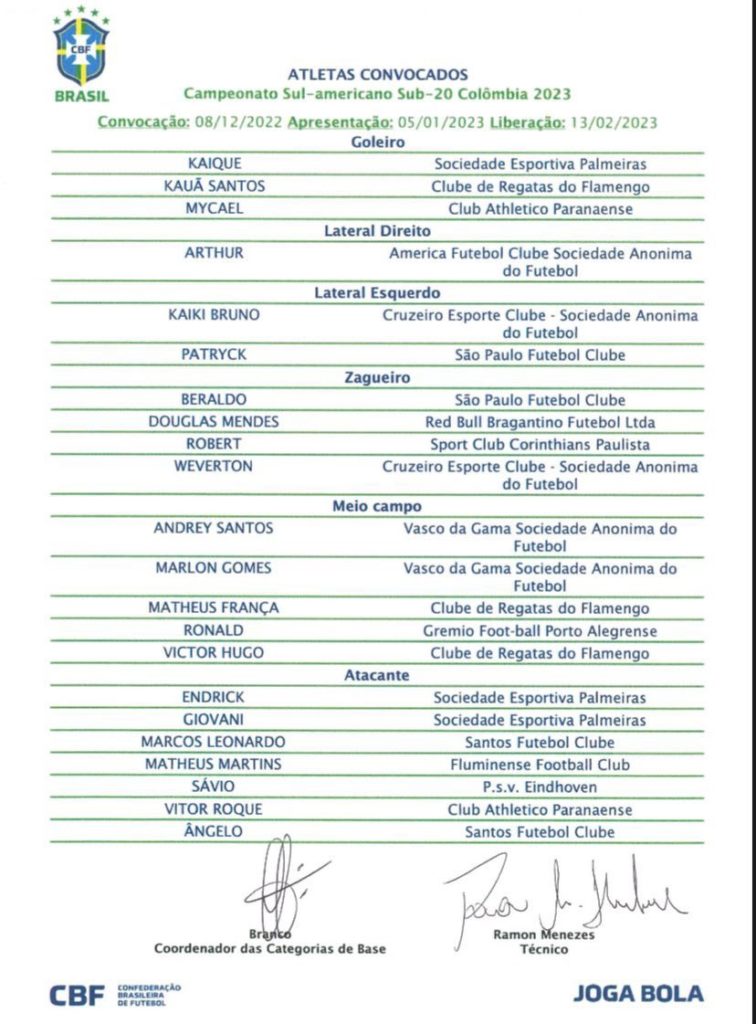 CBF
BRASIL
ATLETAS CONVOCADOS
Campeonato Sul-americano Sub-20 Colômbia 2023
Convocação: 08/12/2022 Apresentação: 05/01/2023 Liberação: 13/02/2023
Goleiro
KAIQUE Sociedade Esportiva Palmeiras
KAUÃ SANTOS Clube de Regatas do Flamengo
MYCAEL Club Athletico Paranaense
Lateral Direito
ARTHUR America Futebol Clube Sociedade Anonima
do Futebol
Lateral Esquerdo
KAIKI BRUNO Cruzeiro Esporte Clube - Sociedade Anonima
do Futebol
PATRYCK São Paulo Futebol Clube
Zagueiro
BERALDO São Paulo Futebol Clube
DOUGLAS MENDES Red Bull Bragantino Futebol Ltda
ROBERT Sport Club Corinthians Paulista
WEVERTON Cruzeiro Esporte Clube - Sociedade Anonima
do Futebol
Meio campo
ANDREY SANTOS Vasco da Gama Sociedade Anonima do
Futebol
MARLON GOMES Vasco da Gama Sociedade Anonima do
Futebol
MATHEUS FRANÇA Clube de Regatas do Flamengo
RONALD Gremio Foot-ball Porto Alegrense
VICTOR HUGO Clube de Regatas do Flamengo
Atacante
ENDRICK Sociedade Esportiva Palmeiras
GIOVANI Sociedade Esportiva Palmeiras
MARCOS LEONARDO Santos Futebol Clube
MATHEUS MARTINS Fluminense Football Club
SÁVIO P.s.v. Eindhoven
VITOR ROQUE Club Athletico Paranaense
ÂNGELO Santos Futebol Clube
Branco Ramon Menezes
Coordenador das Categorias de Base Técnico
CBF CONFEDERAÇÃO
BRASILEIRA
DE FUTEBOL
JOGA BOLA